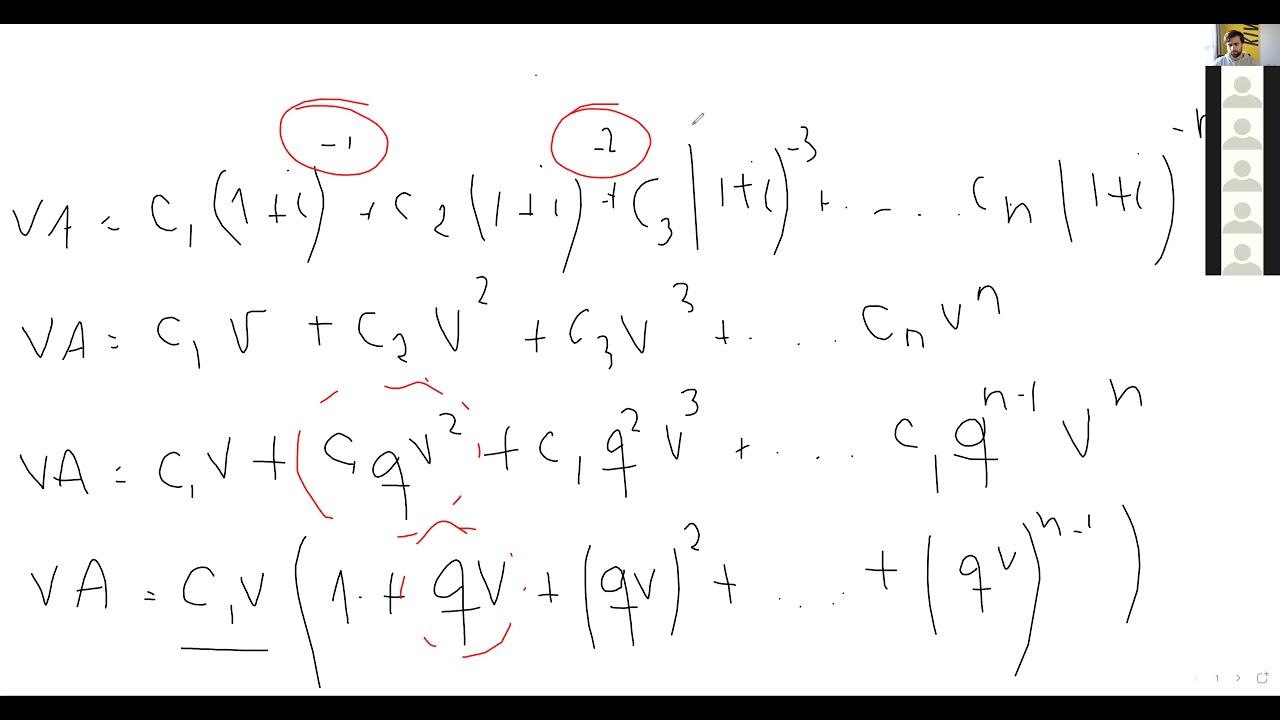 VA = C₁(1+i)⁻¹ + C₂(1+i)⁻² + C₃(1+i)⁻³ + ..... Cₙ(1+i)⁻ⁿ
VA = C₁V + C₂V² + C₃V³ + .... CₙVⁿ
VA = C₁V + (C₁qV² + C₁q²V³ + .... C₁qⁿ⁻¹Vⁿ
VA = C₁V(1 + qV + (qV)² + .... + (qV)ⁿ⁻¹)
1